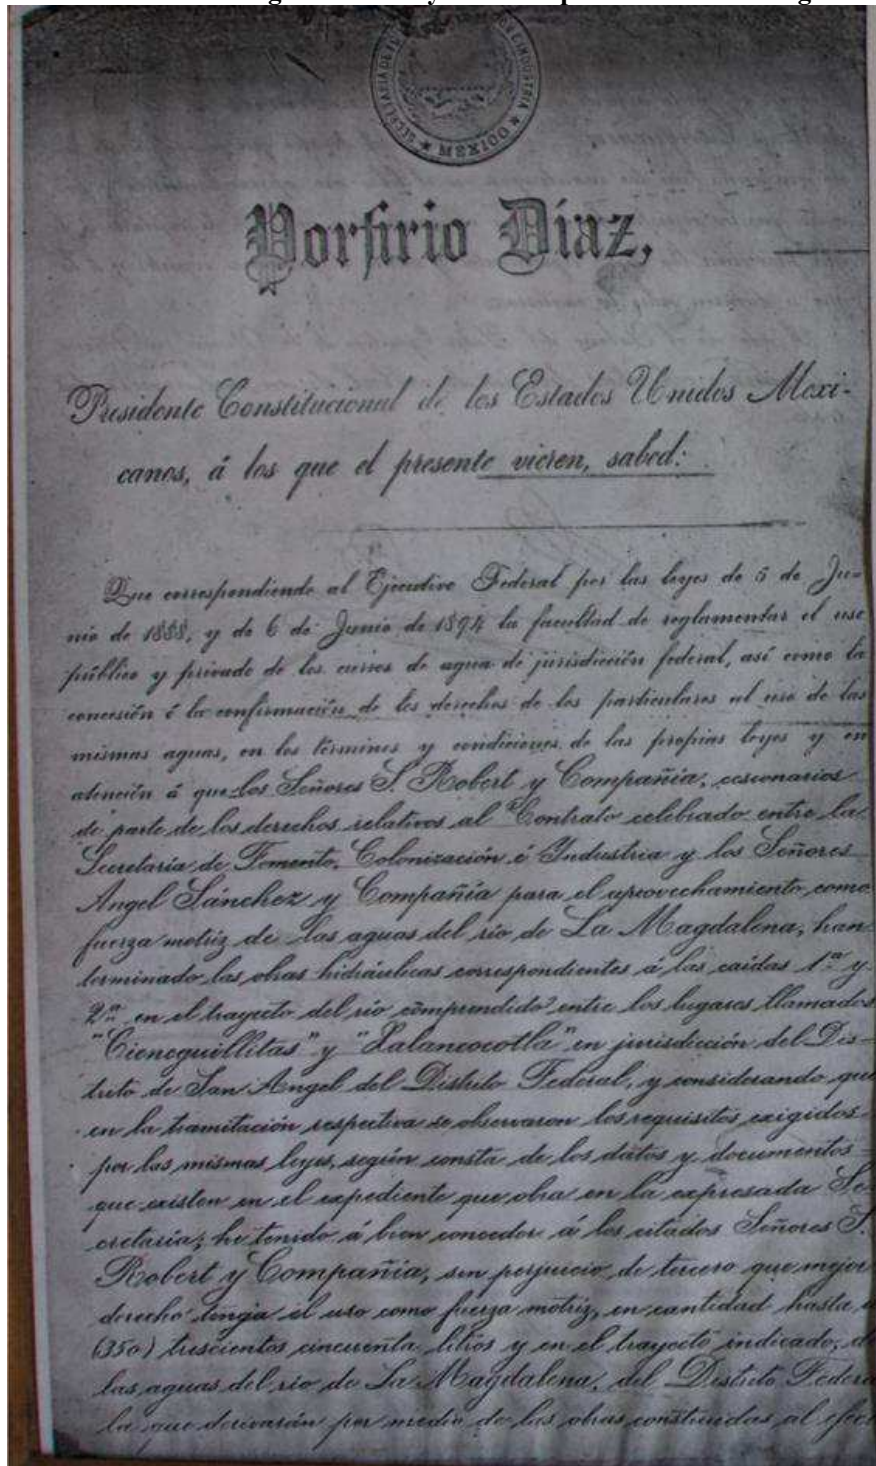 SECRETARIA DE E INDUSTRIA
★ MEXICO ★
Porfirio Díaz,
Presidente Constitucional de los Estados Unidos Mexi-
canos, á los que el presente vieren, sabed:
Que correspondiendo al Ejecutivo Federal por las leyes de 5 de Ju-
nio de 1888, y de 6 de Junio de 1894 la facultad de reglamentar el uso
público y privado de los curres de agua de jurisdicción federal, así como la
concesión ó la confirmación de los derechos de los particulares al uso de las
mismas aguas, en los términos y condiciones de las propias leyes y en
atención á que los Señores S. Robert y Compañía, cesionarios
de parte de los derechos relativos al Contrato celebrado entre la
Secretaría de Fomento, Colonización é Industria y los Señores
Angel Sánchez y Compañía para el aprovechamiento como
fuerza motriz de las aguas del río de La Magdalena, han
terminado las obras hidráulicas correspondientes á las caídas 1ª y
2ª en el trayecto del río comprendido entre los lugares llamados
"Cieneguillitas" y "Xalancocotla" en jurisdicción del Dis-
trito de San Angel del Distrito Federal, y considerando que
en la tramitación respectiva se observaron los requisitos exigidos
por las mismas leyes, según consta de los datos y documentos
que existen en el expediente que obra en la expresada Se-
cretaría; he tenido á bien conceder á los citados Señores S.
Robert y Compañía, sin perjuicio de tercero que mejor
derecho tenga el uso como fuerza motriz, en cantidad hasta d
(350) trescientos cincuenta litros y en el trayecto indicado, de
las aguas del río de La Magdalena, del Distrito Federa
la que derivarán por medio de las obras construidas al efec